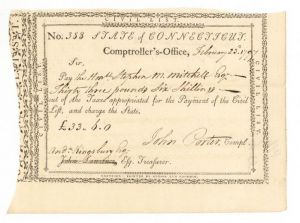 CIVIL LIST.
No. 388 STATE of CONNECTICUT.
Comptroller's-Office, February 23d 1797
Sir,
Pay the Honble. Stephen M. Mitchell Esq.
Thirty three pounds Six Shillings
out of the Taxes appropriated for the Payment of the Civil
List, and charge the State.
£33.6.0
John Porter, Compt.
Andw. Kingsbury Esq
Esq. Treasurer.